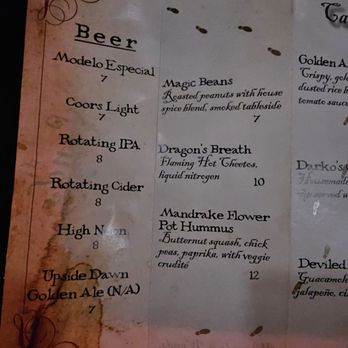 Beer
Modelo Especial
7
Coors Light
7
Rotating IPA
8
Rotating Cider
8
High Noon
8
Upside Dawn
Golden Ale (N/A)
7
Magic Beans
Roasted peanuts with house
spice blend, smoked tableside
7
Dragon's Breath
Flaming Hot Cheetos,
liquid nitrogen
10
Mandrake Flower
Pot Hummus
Butternut squash, chick
peas, paprika, with veggie
crudité
12
Golden
Crispy, gol
dusted rice b
tomato sauc
Darko's
Housemade
served w
Deviled
Guacamole
jalapeño, ci